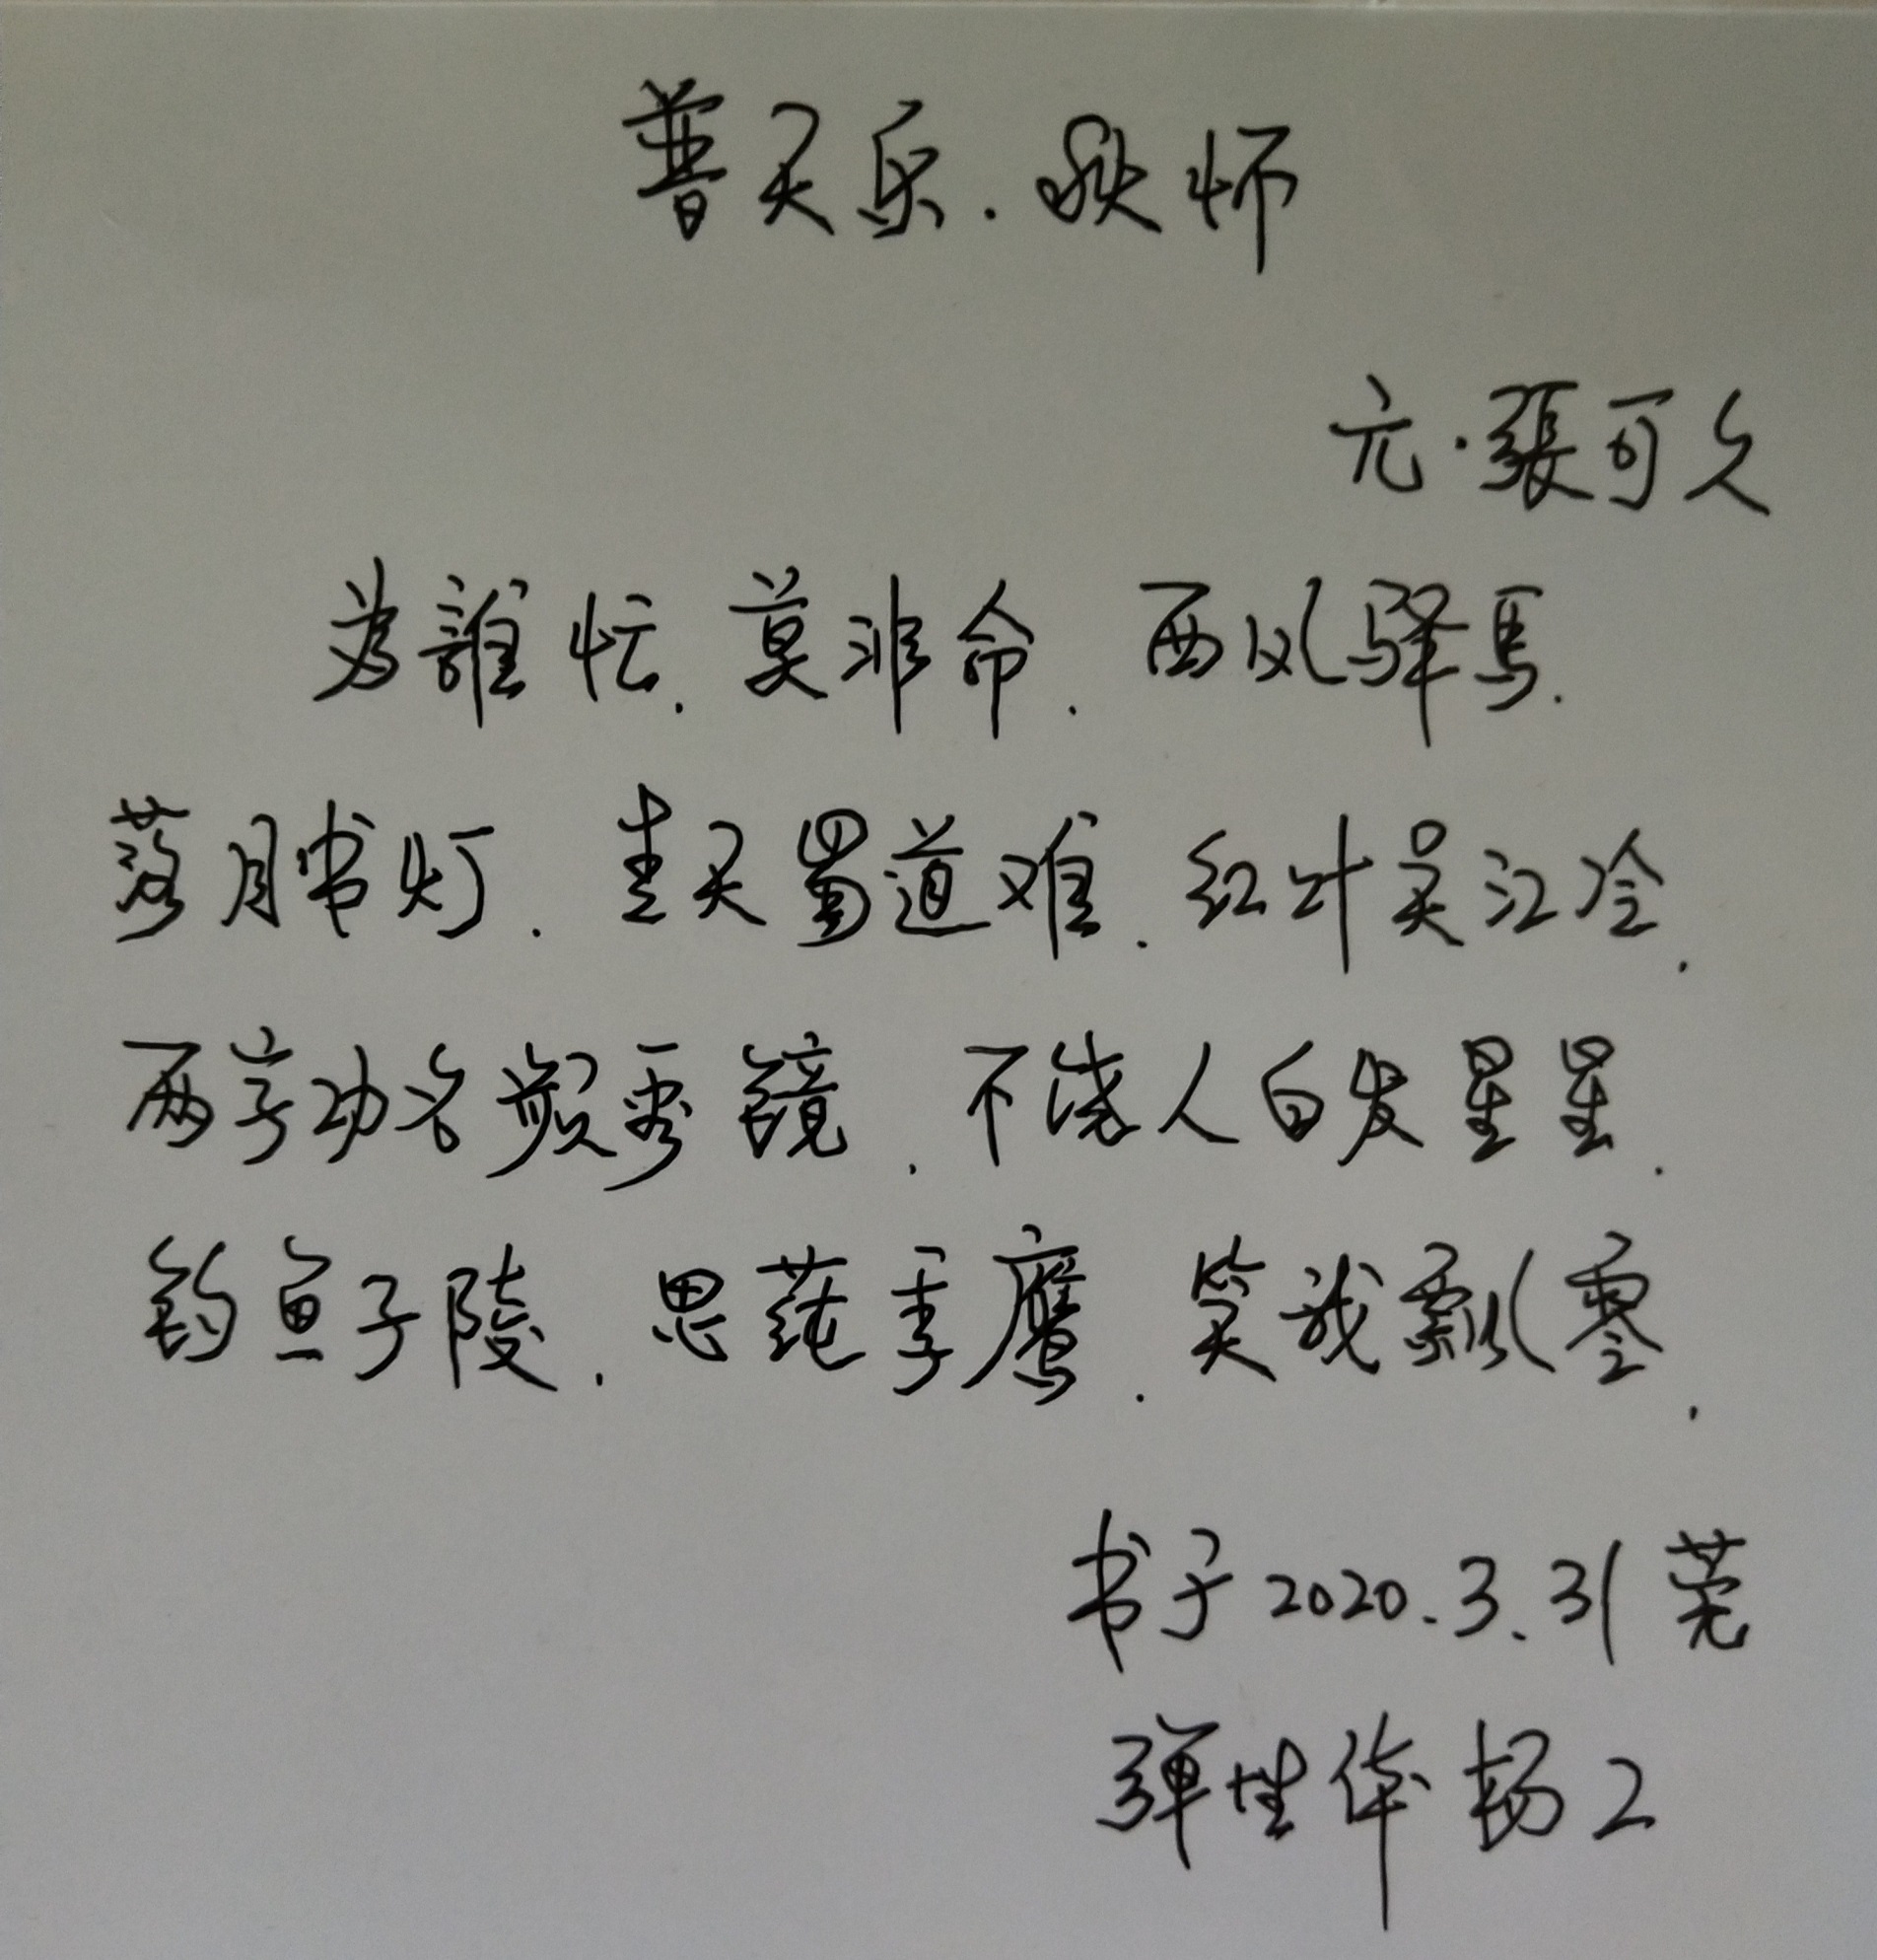 普天乐.秋怀
元.張可久
為誰忙.莫非命.西风驿馬.
落月书灯.青天蜀道难.红叶吴江冷.
两字功名频看镜.不饶人白发星星.
钓鱼子陵.思莼季鹰.笑我飘零.
书于2020.3.31莞
弹性体杨工